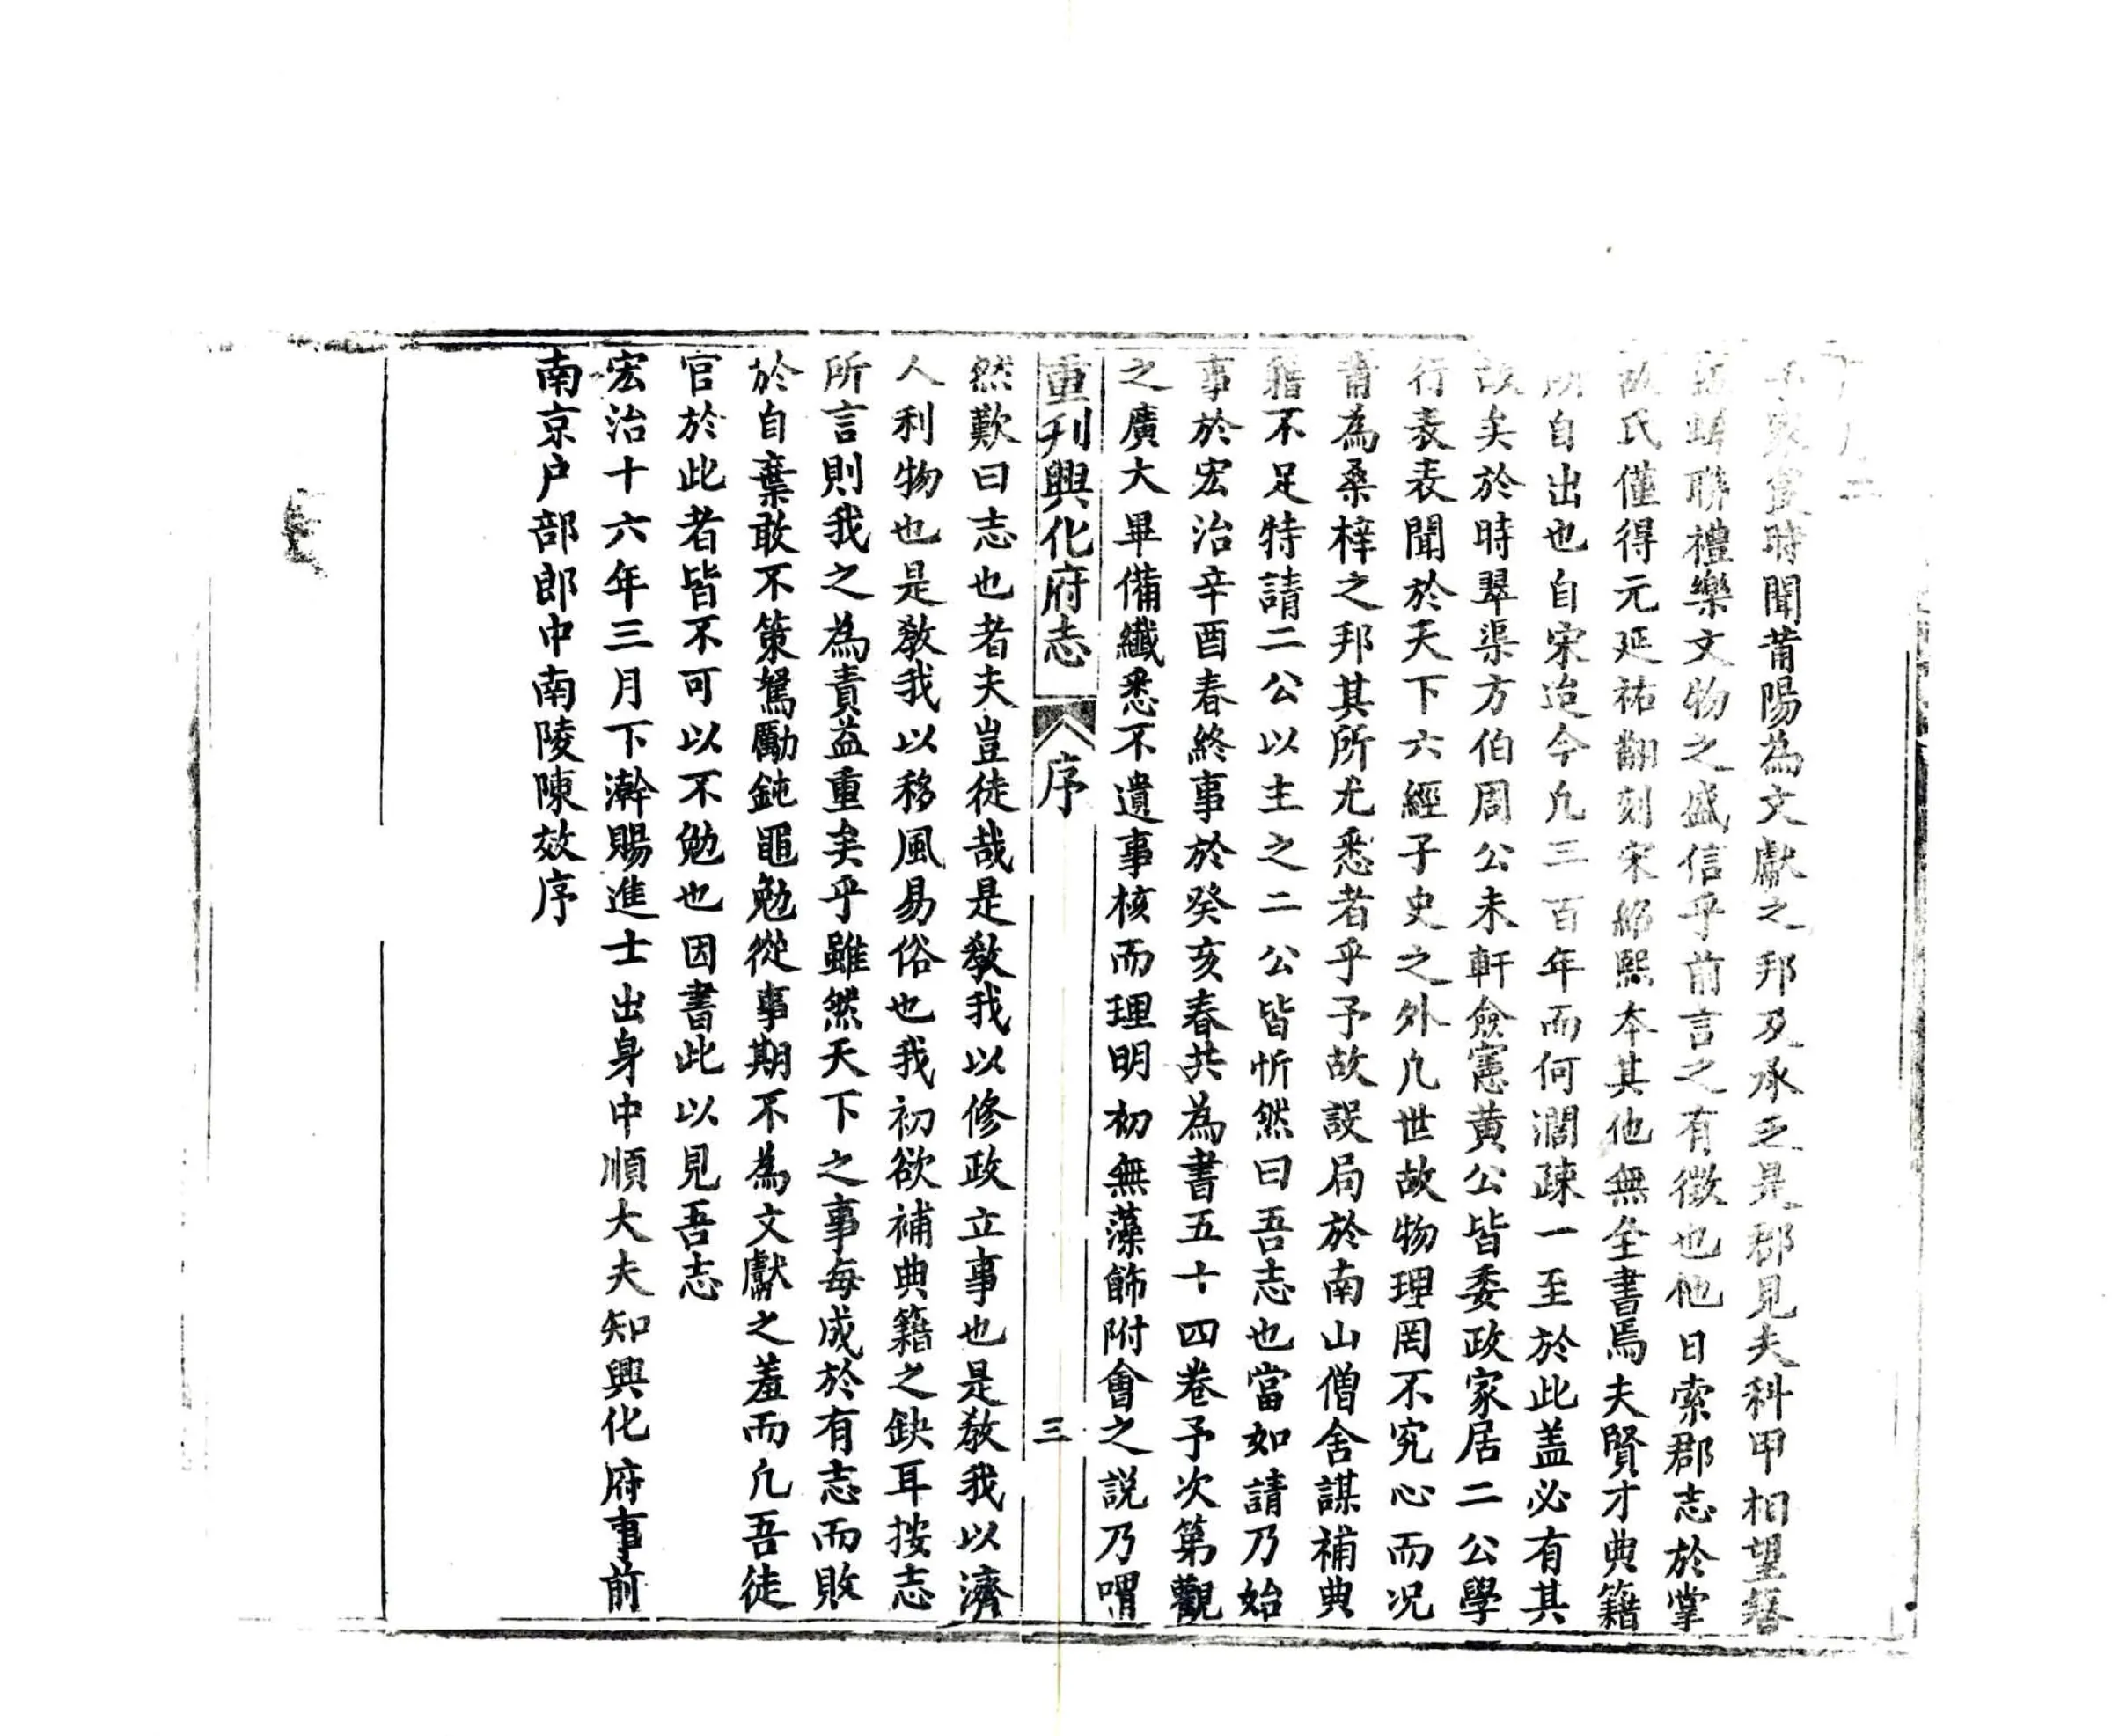 時聞莆陽為文獻之邦及承乏是郡見夫科甲相望簪
聯禮樂文物之盛信乎前言之有徵也他日索郡志於掌
故氏僅得元延祐翻刻宋紹熙本其他無全書焉夫賢才典籍
所自出也自宋迨今凢三百年而何濶疎一至於此盖必有其
故矣於時翠渠方伯周公未軒僉憲黄公皆委政家居二公學
行表表聞於天下六經子史之外凢世故物理罔不究心而况
莆為桑梓之邦其所尤悉者乎予故設局於南山僧舍謀補典
籍不足特請二公以主之二公皆忻然曰吾志也當如請乃始
事於宏治辛酉春終事於癸亥春共為書五十四卷予次第觀
之廣大畢備纖悉不遺事核而理明初無藻飾附會之説乃喟
重刋興化府志 序 三
然歎曰志也者夫豈徒哉是敎我以修政立事也是敎我以濟
人利物也是敎我以移風易俗也我初欲補典籍之缺耳按志
所言則我之為責益重矣乎雖然天下之事每成於有志而敗
於自棄敢不策駑勵鈍黽勉從事期不為文獻之羞而凢吾徒
官於此者皆不可以不勉也因書此以見吾志
宏治十六年三月下澣賜進士出身中順大夫知興化府事前
南京户部郎中南陵陳效序